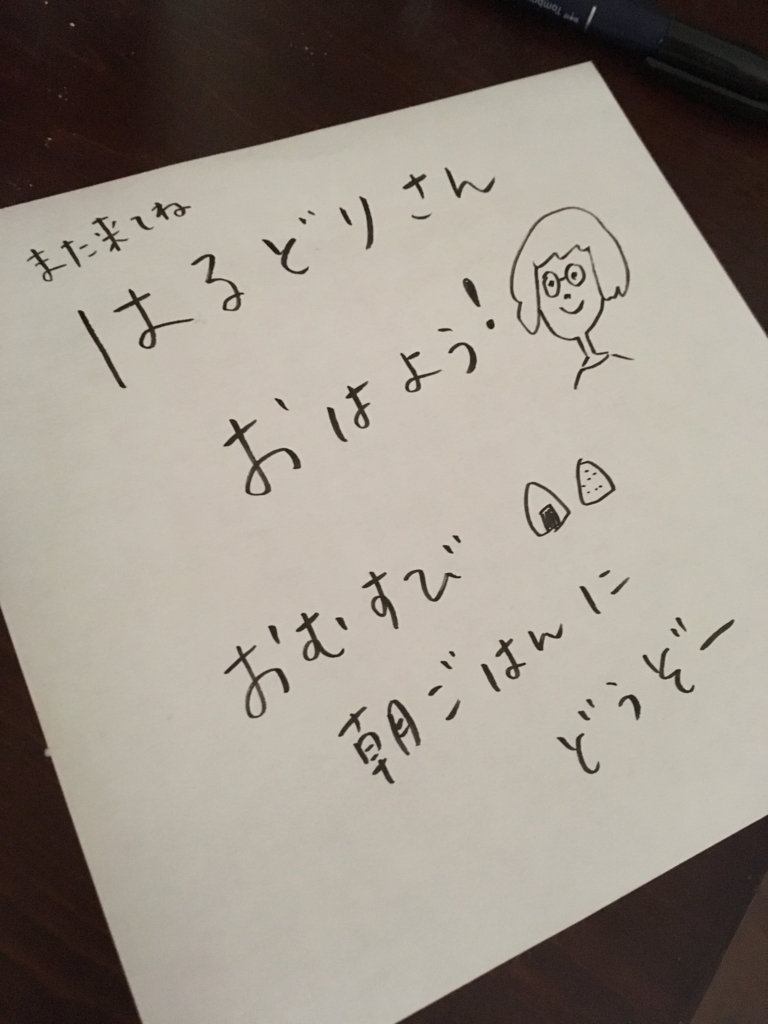 また来てね
はるどりさん
おはよう!
おむすび
朝ごはんに
どうぞー